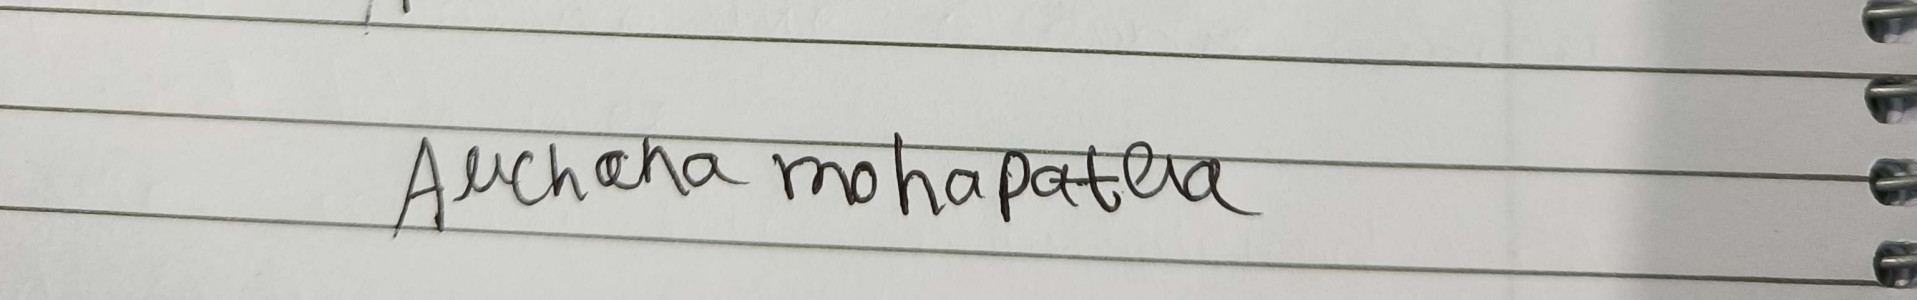 Archana mohapatra